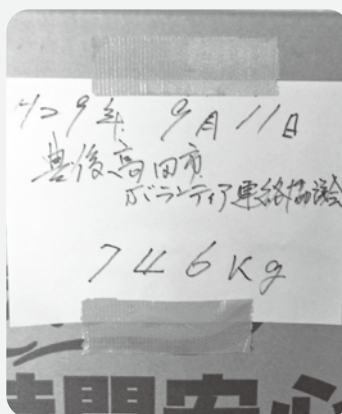 H29年 9月11日
豊後高田市
ボランティア連絡協議会
746Kg
時間安心